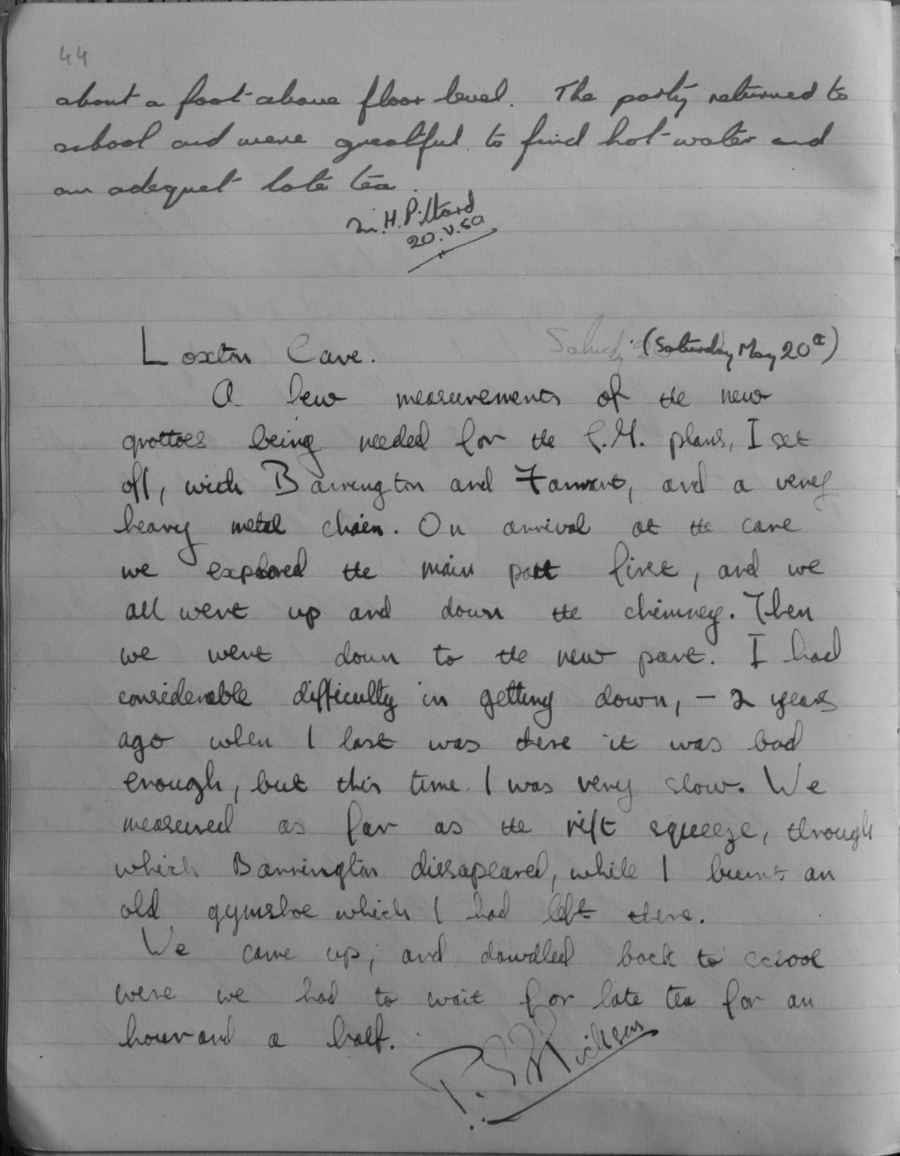 44
about a foot above floor level. The party returned to
school and were greatful to find hot water and
an adequet late tea.
M.H. Pittard
20.V.50
Loxton Cave. (Saturday May 20th)
A few measurements of the new
grottoes being needed for the C.M. plans, I set
off, with Barrington and, and a very
heavy metal chain. On arrival at the cave
we explored the main part first, and we
all went up and down the chimney. Then
we went down to the new part. I had
considerable difficulty in getting down, – 2 years
ago when I last was there it was bad
enough, but this time I was very slow. We
measured as far as the rift squeeze, through
which Barrington dissapeared, while I burnt an
old gymshoe which I had left there.
We came up, and dawdled back to school
were we had to wait for late tea for an
hour and a half.